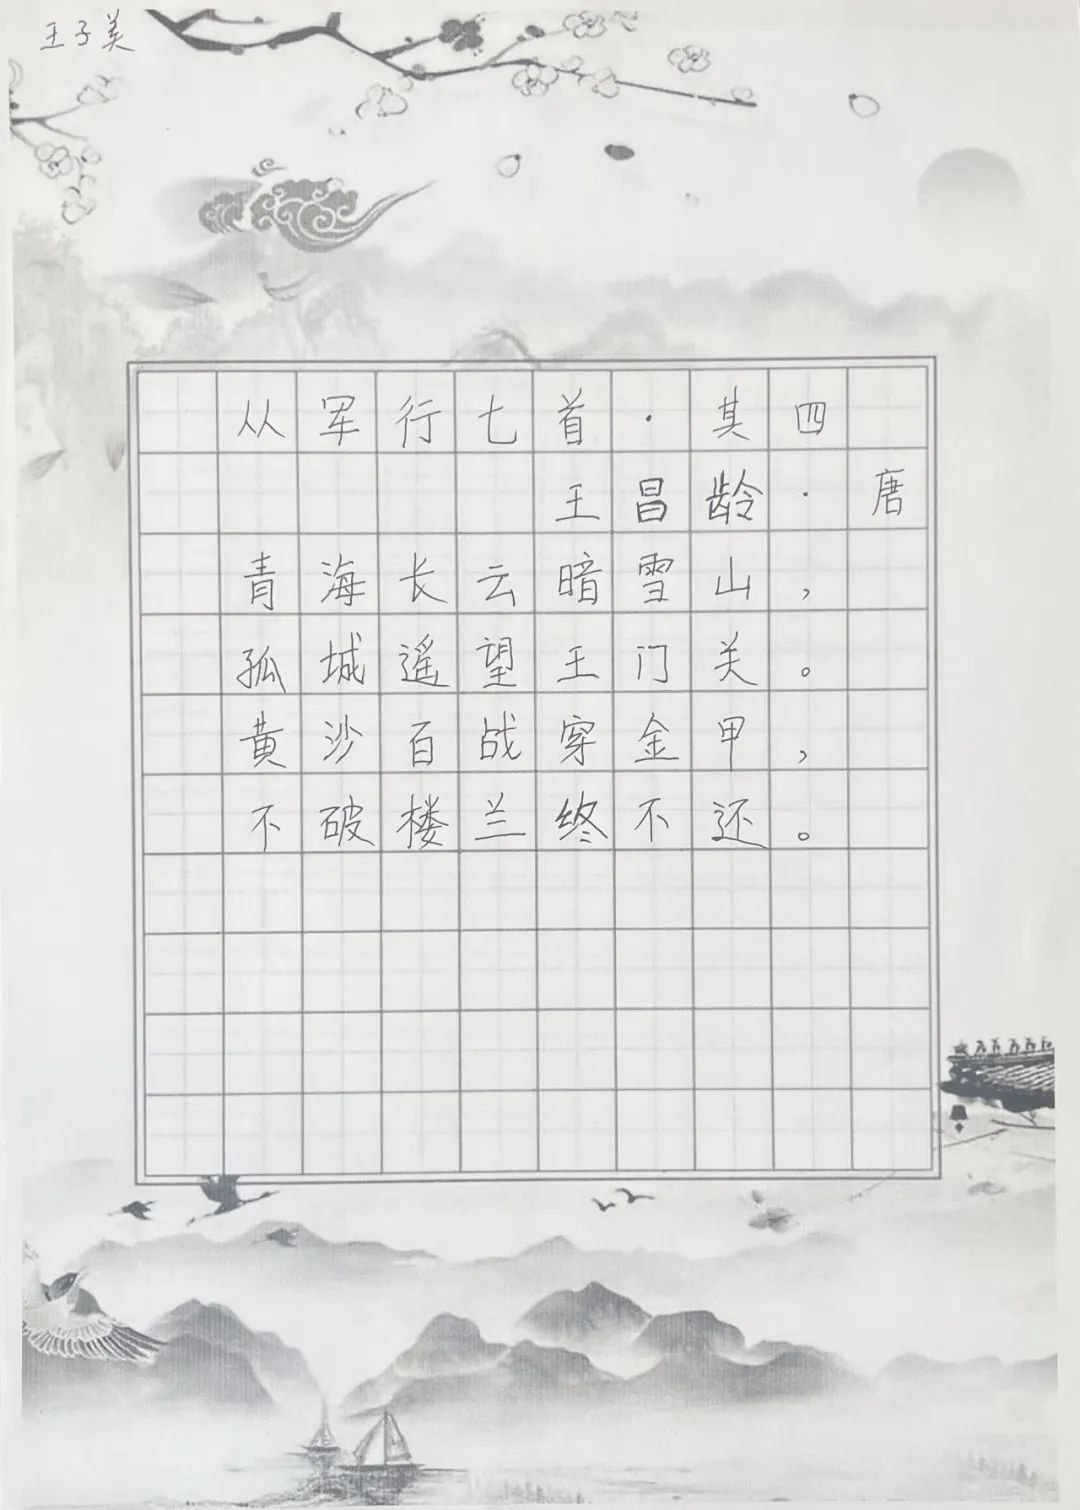 王子美
从军行七首·其四
王昌龄·唐
青海长云暗雪山，
孤城遥望王门关。
黄沙百战穿金甲，
不破楼兰终不还。